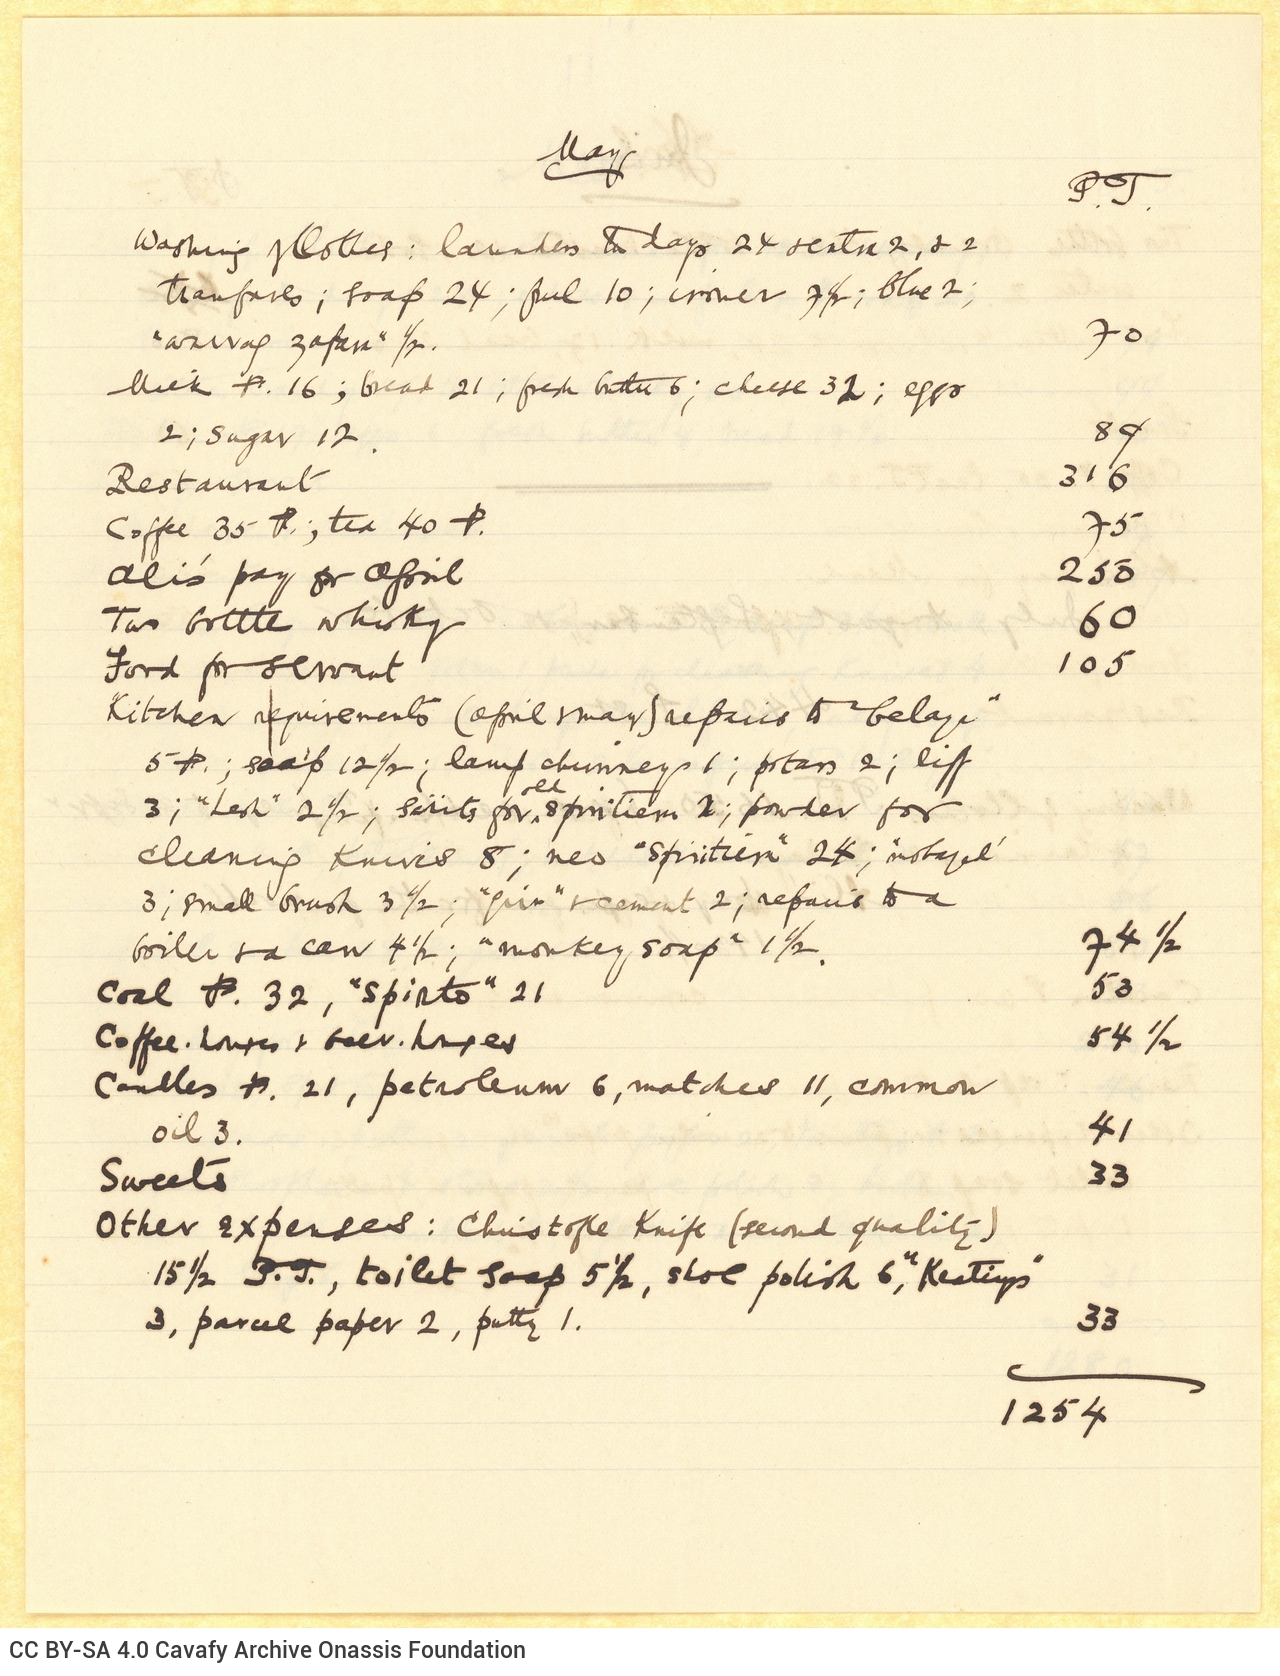 May
P.T.
Washing of Clothes: launders two days 24 2, & 2
tramfares; soap 24; fuel 10; ironer 7½; blue 2;
"warrag zafara" ½. 70
Milk P. 16; bread 21; fresh butter 6; cheese 32; eggs
2; sugar 12. 89
Restaurant 316
Coffee 35 P.; tea 40 P. 75
Ali's pay for April 250
Two bottle whisky 60
Food for servant 105
Kitchen requirements (April & May) repairs to
5 P.; soap 12½; lamp chimneys 1; potass 2; liff
3; 2½; for old spiritiera 2; powder for
cleaning Knives 8; neo "Spiritiera" 24;
3; small brush 3½; & cement 2; repairs to a
boiler & a can 4½; "monkey soap" 1½. 74 ½
Coal P. 32, "Spirto" 21 53
Coffee-houses & beer-houses 54 ½
Candles P. 21, petroleum 6, matches 11, common
oil 3. 41
Sweets 33
Other expenses: Christofle Knife (second quality)
15½ P.T., toilet soap 5½, shoe polish 6, "Keatings"
3, parcel paper 2, putty 1. 33
1254
CC BY-SA 4.0 Cavafy Archive Onassis Foundation